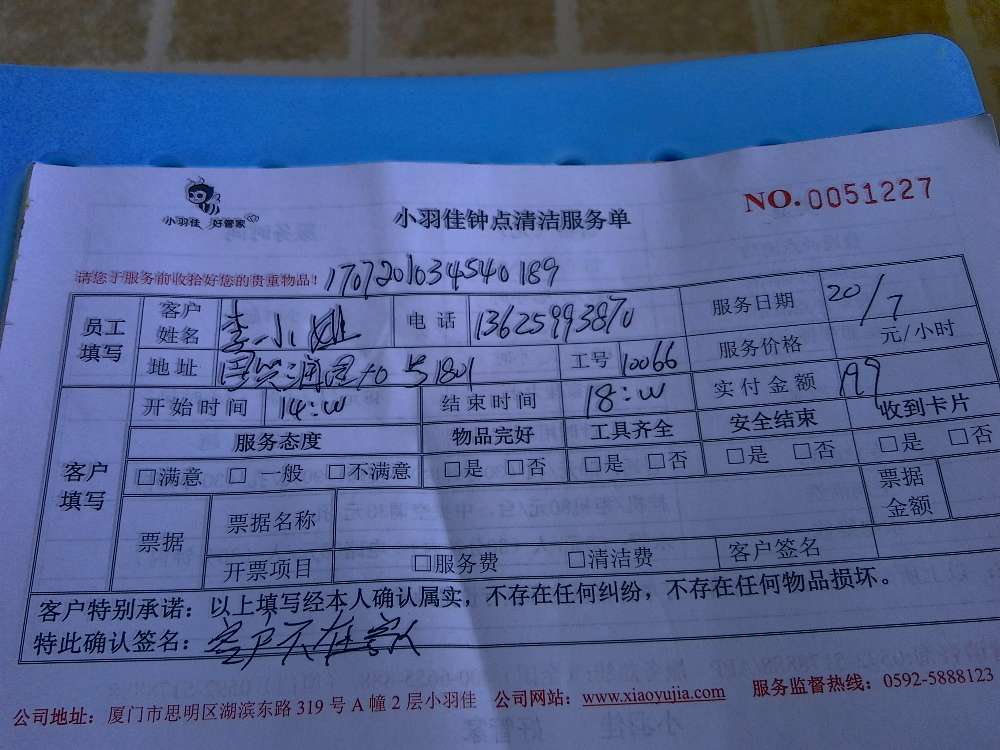 小羽佳 好管家
小羽佳钟点清洁服务单
NO. 0051227
请您于服务前收拾好您的贵重物品！ 1707201034540189
员工填写 客户姓名 李小姐 电话 13625993870 服务日期 20/7
地址 国贸润园10号1801 工号 10066 服务价格 元/小时
客户填写 开始时间 14:00 结束时间 18:00 实付金额 199
服务态度 物品完好 工具齐全 安全结束 收到卡片
□满意 □一般 □不满意 □是 □否 □是 □否 □是 □否 □是 □否
票据 票据名称 票据金额
开票项目 □服务费 □清洁费 客户签名
客户特别承诺：以上填写经本人确认属实，不存在任何纠纷，不存在任何物品损坏。
特此确认签名：客户不在家
公司地址：厦门市思明区湖滨东路319号A幢2层小羽佳 公司网站：www.xiaoyujia.com 服务监督热线：0592-5888123